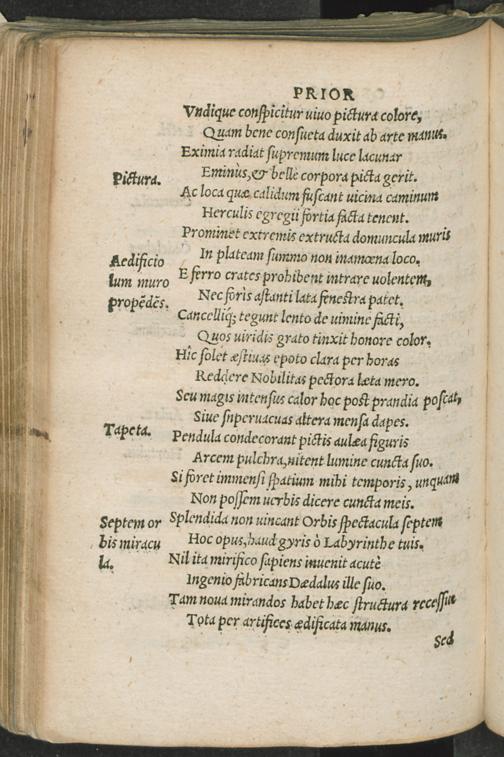 PRIOR
Vndique conspicitur uiuo pictura colore,
Quam bene consueta duxit ab arte manus.
Eximia radiat supremum luce lacunar
Pictura.
Eminus, & bellè corpora picta gerit.
Ac loca quæ calidum fuscant uicina caminum
Herculis egregii fortia facta tenent.
Prominet extremis extructa domuncula muris
Aedificio
lum muro
propẽdẽs.
In plateam summo non inamœna loco.
E ferro crates prohibent intrare uolentem,
Nec foris astanti lata fenestra patet.
Cancelliq; tegunt lento de uimine facti,
Quos uiridis grato tinxit honore color.
Hîc solet æstiuas epoto clara per horas
Reddere Nobilitas pectora læta mero.
Seu magis intensus calor hoc post prandia poscat,
Siue snperuacuas altera mensa dapes.
Tapeta.
Pendula condecorant pictis aulæa figuris
Arcem pulchra, nitent lumine cuncta suo.
Si foret immensi spatium mihi temporis, unquam
Non possem uerbis dicere cuncta meis.
Septem or
bis miracu
la.
Splendida non uincant Orbis spectacula septem
Hoc opus, haud gyris ò Labyrinthe tuis.
Nil ita mirifico sapiens inuenit acutè
Ingenio fabricans Dædalus ille suo.
Tam noua mirandos habet hæc structura recessus
Tota per artifices ædificata manus.
Sed